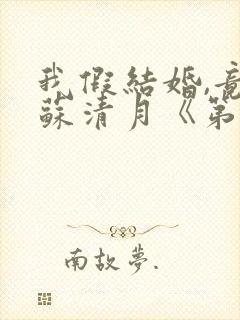 我假結婚,竟
蘇清月《第
南故夢.